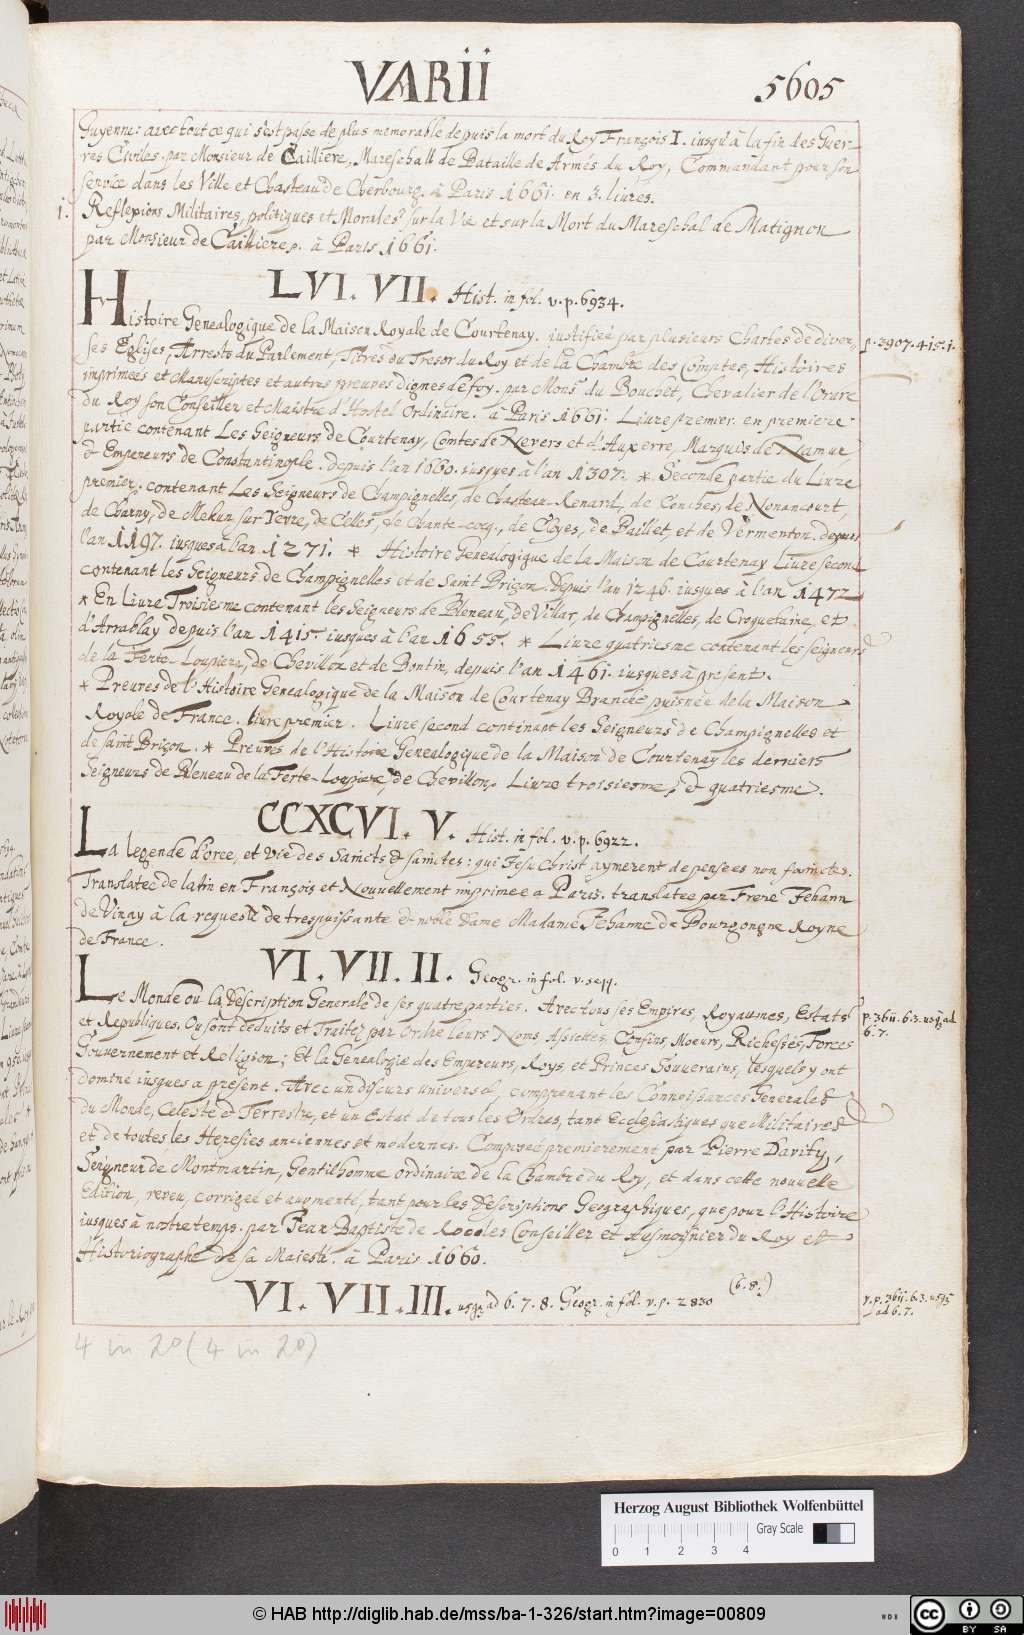 VARII 5605
Guyenne: avec tout ce qui s'est passé de plus memorable depuis la mort du Roy François I. iusqu'à la fin des Guer-
res Civiles. par Monsieur de Cailliere, Mareschall de Bataille de Armés du Roy, Commandant pour son
service dans les Ville et Chasteau de Cherbourg. à Paris 1661. en 3. liures.
1. Reflexions Militaires, politiques et Morales sur la Vie et sur la Mort du Mareschal de Matignon
par Monsieur de Cailliere p. à Paris 1661.
LVI. VII. Hist. in fol. v. p. 6934.
Histoire Genealogique de la Maison Royale de Courtenay. iustifiée par plusieurs Chartes de diver- p. 3907. 4. 15. 1.
ses Eglises, Arrests du Parlement, Titres du Tresor du Roy et de la Chambre des Comptes, Histoires
imprimées et Manuscriptes et autres preuves dignes de foy. par Mons.r du Bouchet, Chevalier de l'Ordre
du Roy son Conseiller et Maistre d'Hostel Ordinaire. à Paris 1661. Liure premier. en premiere
partie contenant Les Seigneurs de Courtenay, Comtes de Nevers et d'Auxerre, Marquis de Namur,
& Empereurs de Constantinople. depuis l'an 1660. iusques à l'an 1307. * Seconde partie du Liure
premier. contenant Les Seigneurs de Champignelles, de Chasteau-Renard, de Conches, de Nonancourt,
de Charny, de Mehun sur Yevre, de Celles, de Chante-cocq, de Cloyes, de Paillet, et de Vermenton. depuis
l'an 1197. iusques à l'an 1271. * Histoire Genealogique de la Maison de Courtenay Liure second
contenant les Seigneurs de Champignelles et de Saint Briçon. Depuis l'an 1246. iusques à l'an 1472
* En Liure Troisiesme contenant les Seigneurs de Bleneau, de Villar, de Champignelles, de Croquetaine, et
d'Arrablay depuis l'an 1415. iusques à l'an 1655. * Liure quatriesme contenant les seigneurs
de la Ferte-Loupiere, de Chevillon et de Bontin, depuis l'an 1461. iusques à present.
* Preuves de l'Histoire Genealogique de la Maison de Courtenay Branche puisnée de la Maison
Royole de France. liure premier. Liure second continant les Seigneurs de Champignelles et
de saint Briçon. * Preuves de l'Histoire Genealogique de la Maison de Courtenay les derniers
Seigneurs de Bleneau de la Ferte-Loupiere, de Chevillon. Liure troisiesme, & quatriesme.
CCXCVI. V. Hist. in fol. v. p. 6922.
La legende d'oree, et vie des Saincts & sainctes: qui Jesu Christ aymerent de pensees non fainctes.
Translatee de latin en François et Nouvellement imprimee a Paris. translatee par Frere Jehann
de Vinay à la requeste de trespuissante & noble Dame Madame Jehanne de Bourgongne Royne
de France.
VI. VII. II. Geogr. in fol. v. seqq.
Le Monde ou la Description Generale de ses quatre parties. Avec tous ses Empires, Royaumes, Estats p. 3611. 6. 3. usq ad
et Republiques. Ou sont deduits et Traitez par Ordre leurs Noms, Assiettes, Confins, Moeurs, Richesses, Forces 6. 7.
Gouvernement et Religion; Et la Genealogie des Empereurs, Roys, et Princes Souverains, lesquels y ont
dominé iusques a present. Avec un discours universel, comprenant les Connoissances Generales
du Monde, Celeste & Terrestre, et un Estat de tous les Ordres, tant Ecclesiastiques que Militaires
et de toutes les Heresies anciennes et modernes. Composé premierement par Pierre Davity,
Seigneur de Montmartin, Gentilhomme ordinaire de la Chambre du Roy, et dans cette nouvelle
Edition, reveu, corrigée et augmenté, tant pour les Descriptions Geographiques, que pour l'Histoire
iusques à nostre temps. par Jean Baptiste de Rocoles Conseiller et Aysmosnier du Roy et
Historiographe de sa Maiesté. à Paris 1660.
VI. VII. III. usq ad 6. 7. 8. Geogr. in fol. v. p. 2830 (6. 8.) v. p. 3611. 6. 3. usq
ad 6. 7.
4 in 20 (4 in 20)
Herzog August Bibliothek Wolfenbüttel
Gray Scale
0 1 2 3 4
© HAB http://diglib.hab.de/mss/ba-1-326/start.htm?image=00809
WDB
cc BY SA